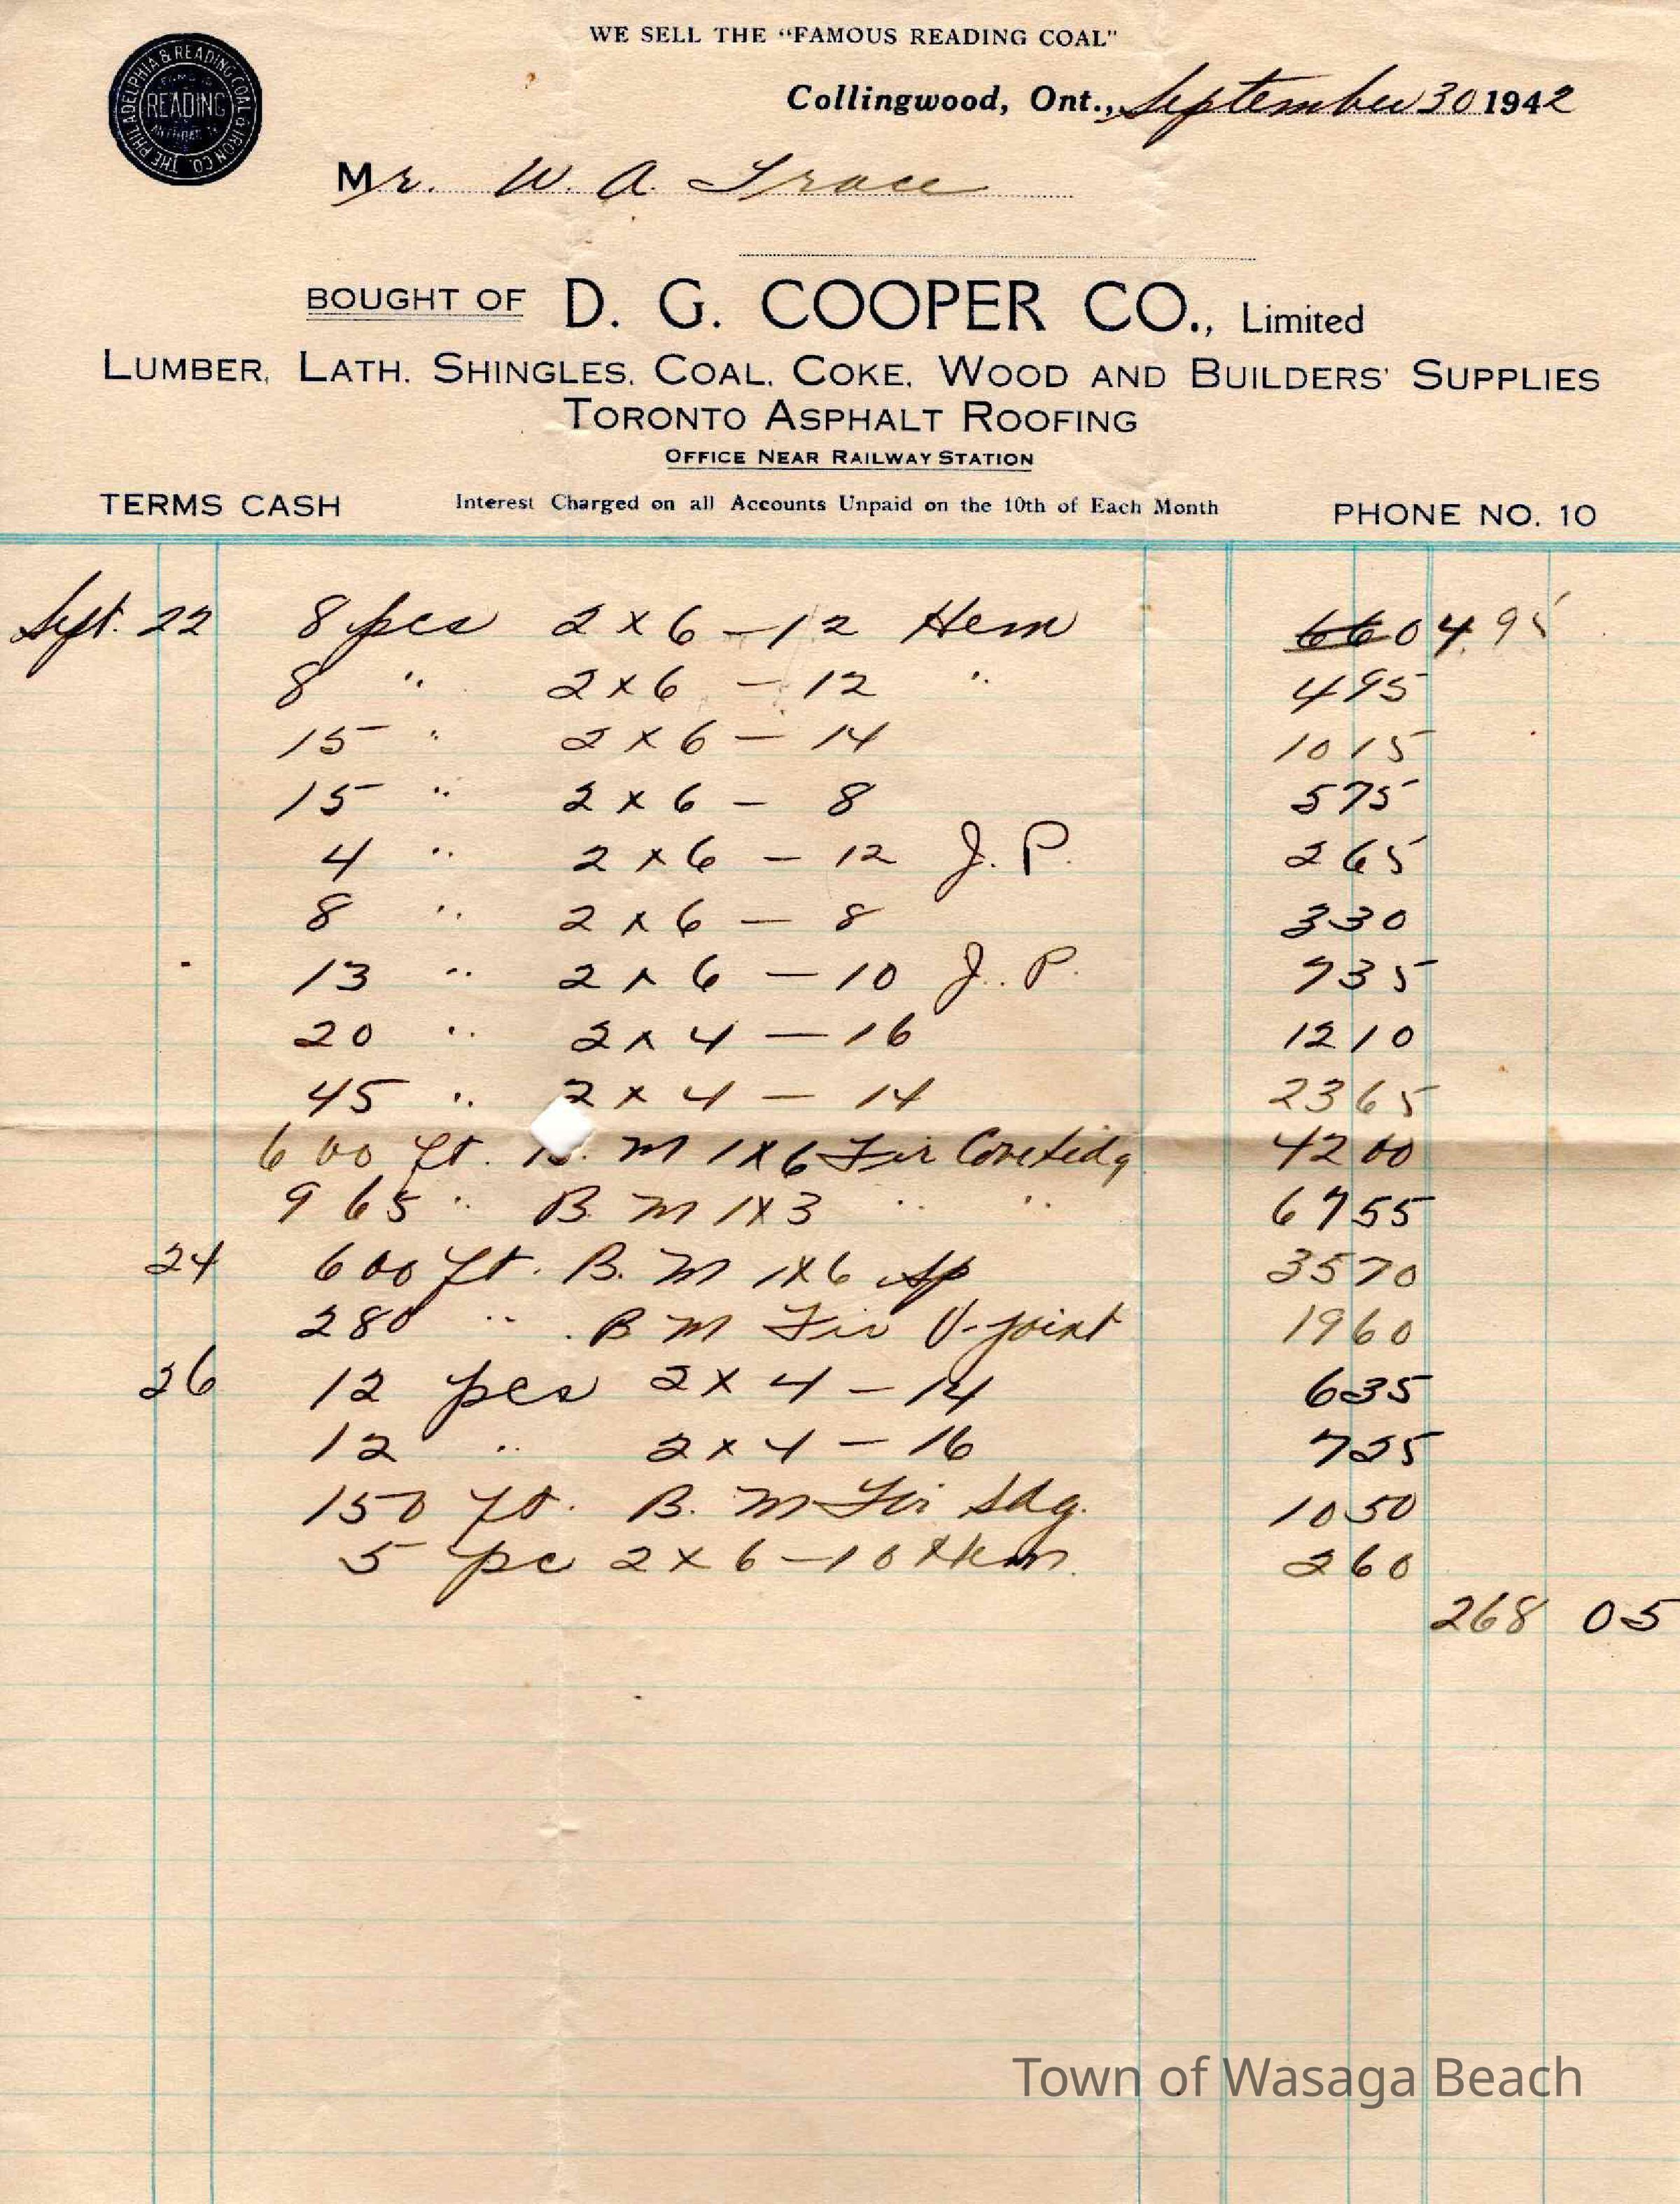 WE SELL THE "FAMOUS READING COAL"
THE PHILADELPHIA & READING COAL & IRON CO.
READING
Collingwood, Ont., September 30 1942
Mr. W. A. Trace
BOUGHT OF D. G. COOPER CO., Limited
LUMBER, LATH, SHINGLES, COAL, COKE, WOOD AND BUILDERS' SUPPLIES
TORONTO ASPHALT ROOFING
OFFICE NEAR RAILWAY STATION
TERMS CASH Interest Charged on all Accounts Unpaid on the 10th of Each Month PHONE NO. 10
Sept. 22 8 pcs 2 x 6 - 12 Hem 660 4.95
8 " 2 x 6 - 12 " 495
15 " 2 x 6 - 14 1015
15 " 2 x 6 - 8 575
4 " 2 x 6 - 12 J. P. 265
8 " 2 x 6 - 8 330
13 " 2 x 6 - 10 J. P. 735
20 " 2 x 4 - 16 1210
45 " 2 x 4 - 14 2365
600 ft. B. M 1x6 Fir Covesidg 4200
965 " B. M 1x3 " " 6755
24 600 ft. B. M 1x6 Sp 3570
280 " B M Fir V-joint 1960
26 12 pcs 2 x 4 - 14 635
12 " 2 x 4 - 16 725
150 ft. B. M Fir Sdg. 1050
5 pc 2 x 6 - 10 Hem. 260
268 05
Town of Wasaga Beach